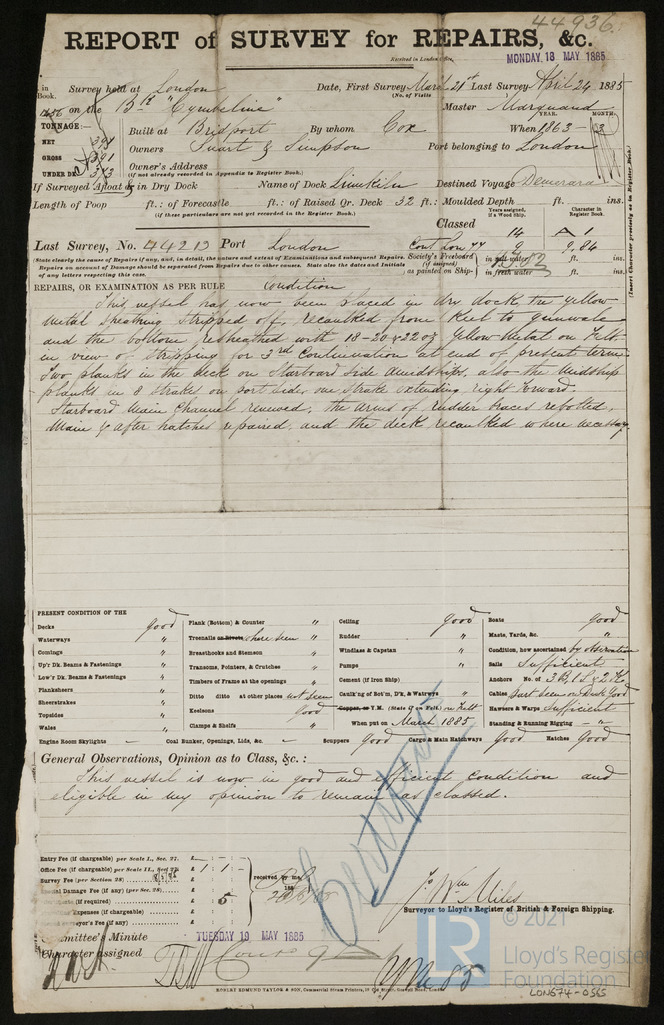 44936.
REPORT of SURVEY for REPAIRS, &c.
Received in London Office, MONDAY. 18 MAY 1885
in Book. Survey held at London Date, First Survey March 21st Last Survey April 24 1885
on the Bk "Cymbeline" (No. of Visits Master Marquand
TONNAGE:— Built at Bridport By whom Cox When 1863
YEAR. MONTH.
NET 394
GROSS 391
Owners Stuart & Simpson Port belonging to London
UNDER DK 373
Owner's Address
(if not already recorded in Appendix to Register Book.)
If Surveyed Afloat or in Dry Dock Name of Dock Limekiln Destined Voyage Demerara
Length of Poop ft.: of Forecastle ft.: of Raised Qr. Deck 32 ft.: Moulded Depth ft. ins.
(if these particulars are not yet recorded in the Register Book.)
Years assigned, if a Wood Ship. Character in Register Book.
Classed 14 A 1
Last Survey, No. 44213 Port London Cont Lon 77 9 9,84
(State clearly the cause of Repairs if any, and, in detail, the nature and extent of Examinations and subsequent Repairs.
Repairs on account of Damage should be separated from Repairs due to other causes. State also the dates and Initials
of any letters respecting this case.
Society's Freeboard (if assigned) as painted on Ship- in salt water ft. ins.
in fresh water ft. ins.
(Insert Character precisely as in Register Book.)
REPAIRS, OR EXAMINATION AS PER RULE Condition
This vessel has now been placed in dry dock the yellow
metal sheathing stripped off, recaulked from Keel to gunwale
and the bottom resheathed with 18-20 & 22 oz Yellow Metal on Felt.
in view of stripping for 3rd Continuation at end of present term
Two planks in the deck on Starboard side amidships, also the midship
planks in 8 strakes on port side, one strake extending right forward.
Starboard Main Channel renewed, the arms of rudder braces rebolted,
Main & after hatches repaired, and the deck recaulked where necessary.
PRESENT CONDITION OF THE
Decks good
Waterways "
Comings "
Up'r Dk. Beams & Fastenings "
Low'r Dk. Beams & Fastenings "
Planksheers "
Sheerstrakes "
Topsides "
Wales "
Engine Room Skylights –
Plank (Bottom) & Counter "
Treenails or Rivets where seen "
Breasthooks and Stemson "
Transoms, Pointers, & Crutches "
Timbers of Frame at the openings "
Ditto ditto at other places not seen
Keelsons Good
Clamps & Shelfs "
Coal Bunker, Openings, Lids, &c. –
Ceiling good
Rudder "
Windlass & Capstan "
Pumps "
Cement (if Iron Ship)
Caulk'ng of Bot'm, D'k, & Waterw'ys "
Copper, or Y.M. (State if on Felt.) on Felt
When put on March 1885
Scuppers Good Cargo & Main Hatchways Good Hatches Good
Boats good
Masts, Yards, &c. "
Condition, how ascertained by observation
Sails Sufficient
Anchors No. of 3 B, 1 S, & 2 K.
Cables part seen on Deck Good
Hawsers & Warps sufficient
Standing & Running Rigging – " –
General Observations, Opinion as to Class, &c.:
This vessel is now in good and efficient condition and
eligible in my opinion to remain as classed.
Entry Fee (if chargeable) per Scale I., Sec. 27. £
Office Fee (if chargeable) per Scale II., Sec. 27 £ 1 : 1 :
Survey Fee (per Section 28) £
Special Damage Fee (if any) (per Sec. 28) £
(if required) £ 5
Expenses (if chargeable) £
Surveyor's Fee (if any) £
received by me,
188
Certificate
Jo Wm Miles
Surveyor to Lloyd's Register of British & Foreign Shipping.
Committee's Minute TUESDAY 19 MAY 1885
Character assigned
ROBERT EDMUND TAYLOR & SON, Commercial Steam Printers, 19 Old Street, Goswell Road, London
© 2021
LR
Lloyd's Register
Foundation
LON574-0565